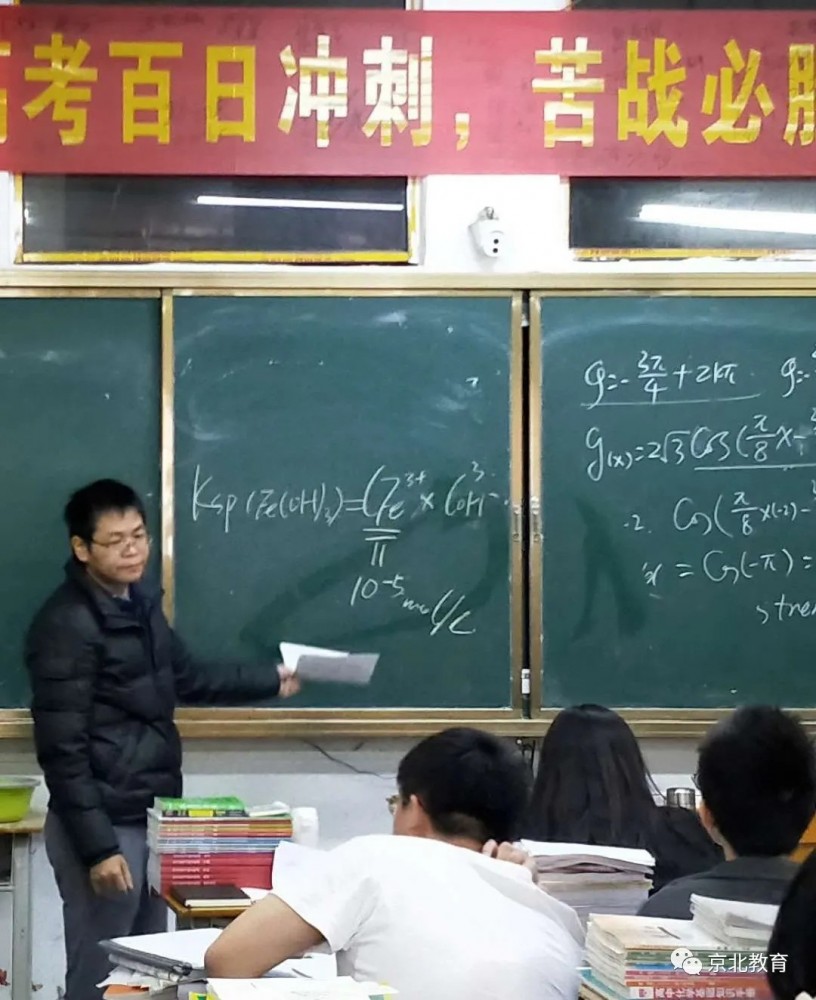 高考百日冲刺，苦战必胜
Ksp(Fe(OH)₃)=C Fe³⁺ × C³ OH⁻
10⁻⁵ mol/L
φ=-3π/4+2kπ φ=-
g(x)=2√3 Cos(π/8 x-
-2. Cos(π/8 ×(-2)-
= Cos(-π) =
京北教育